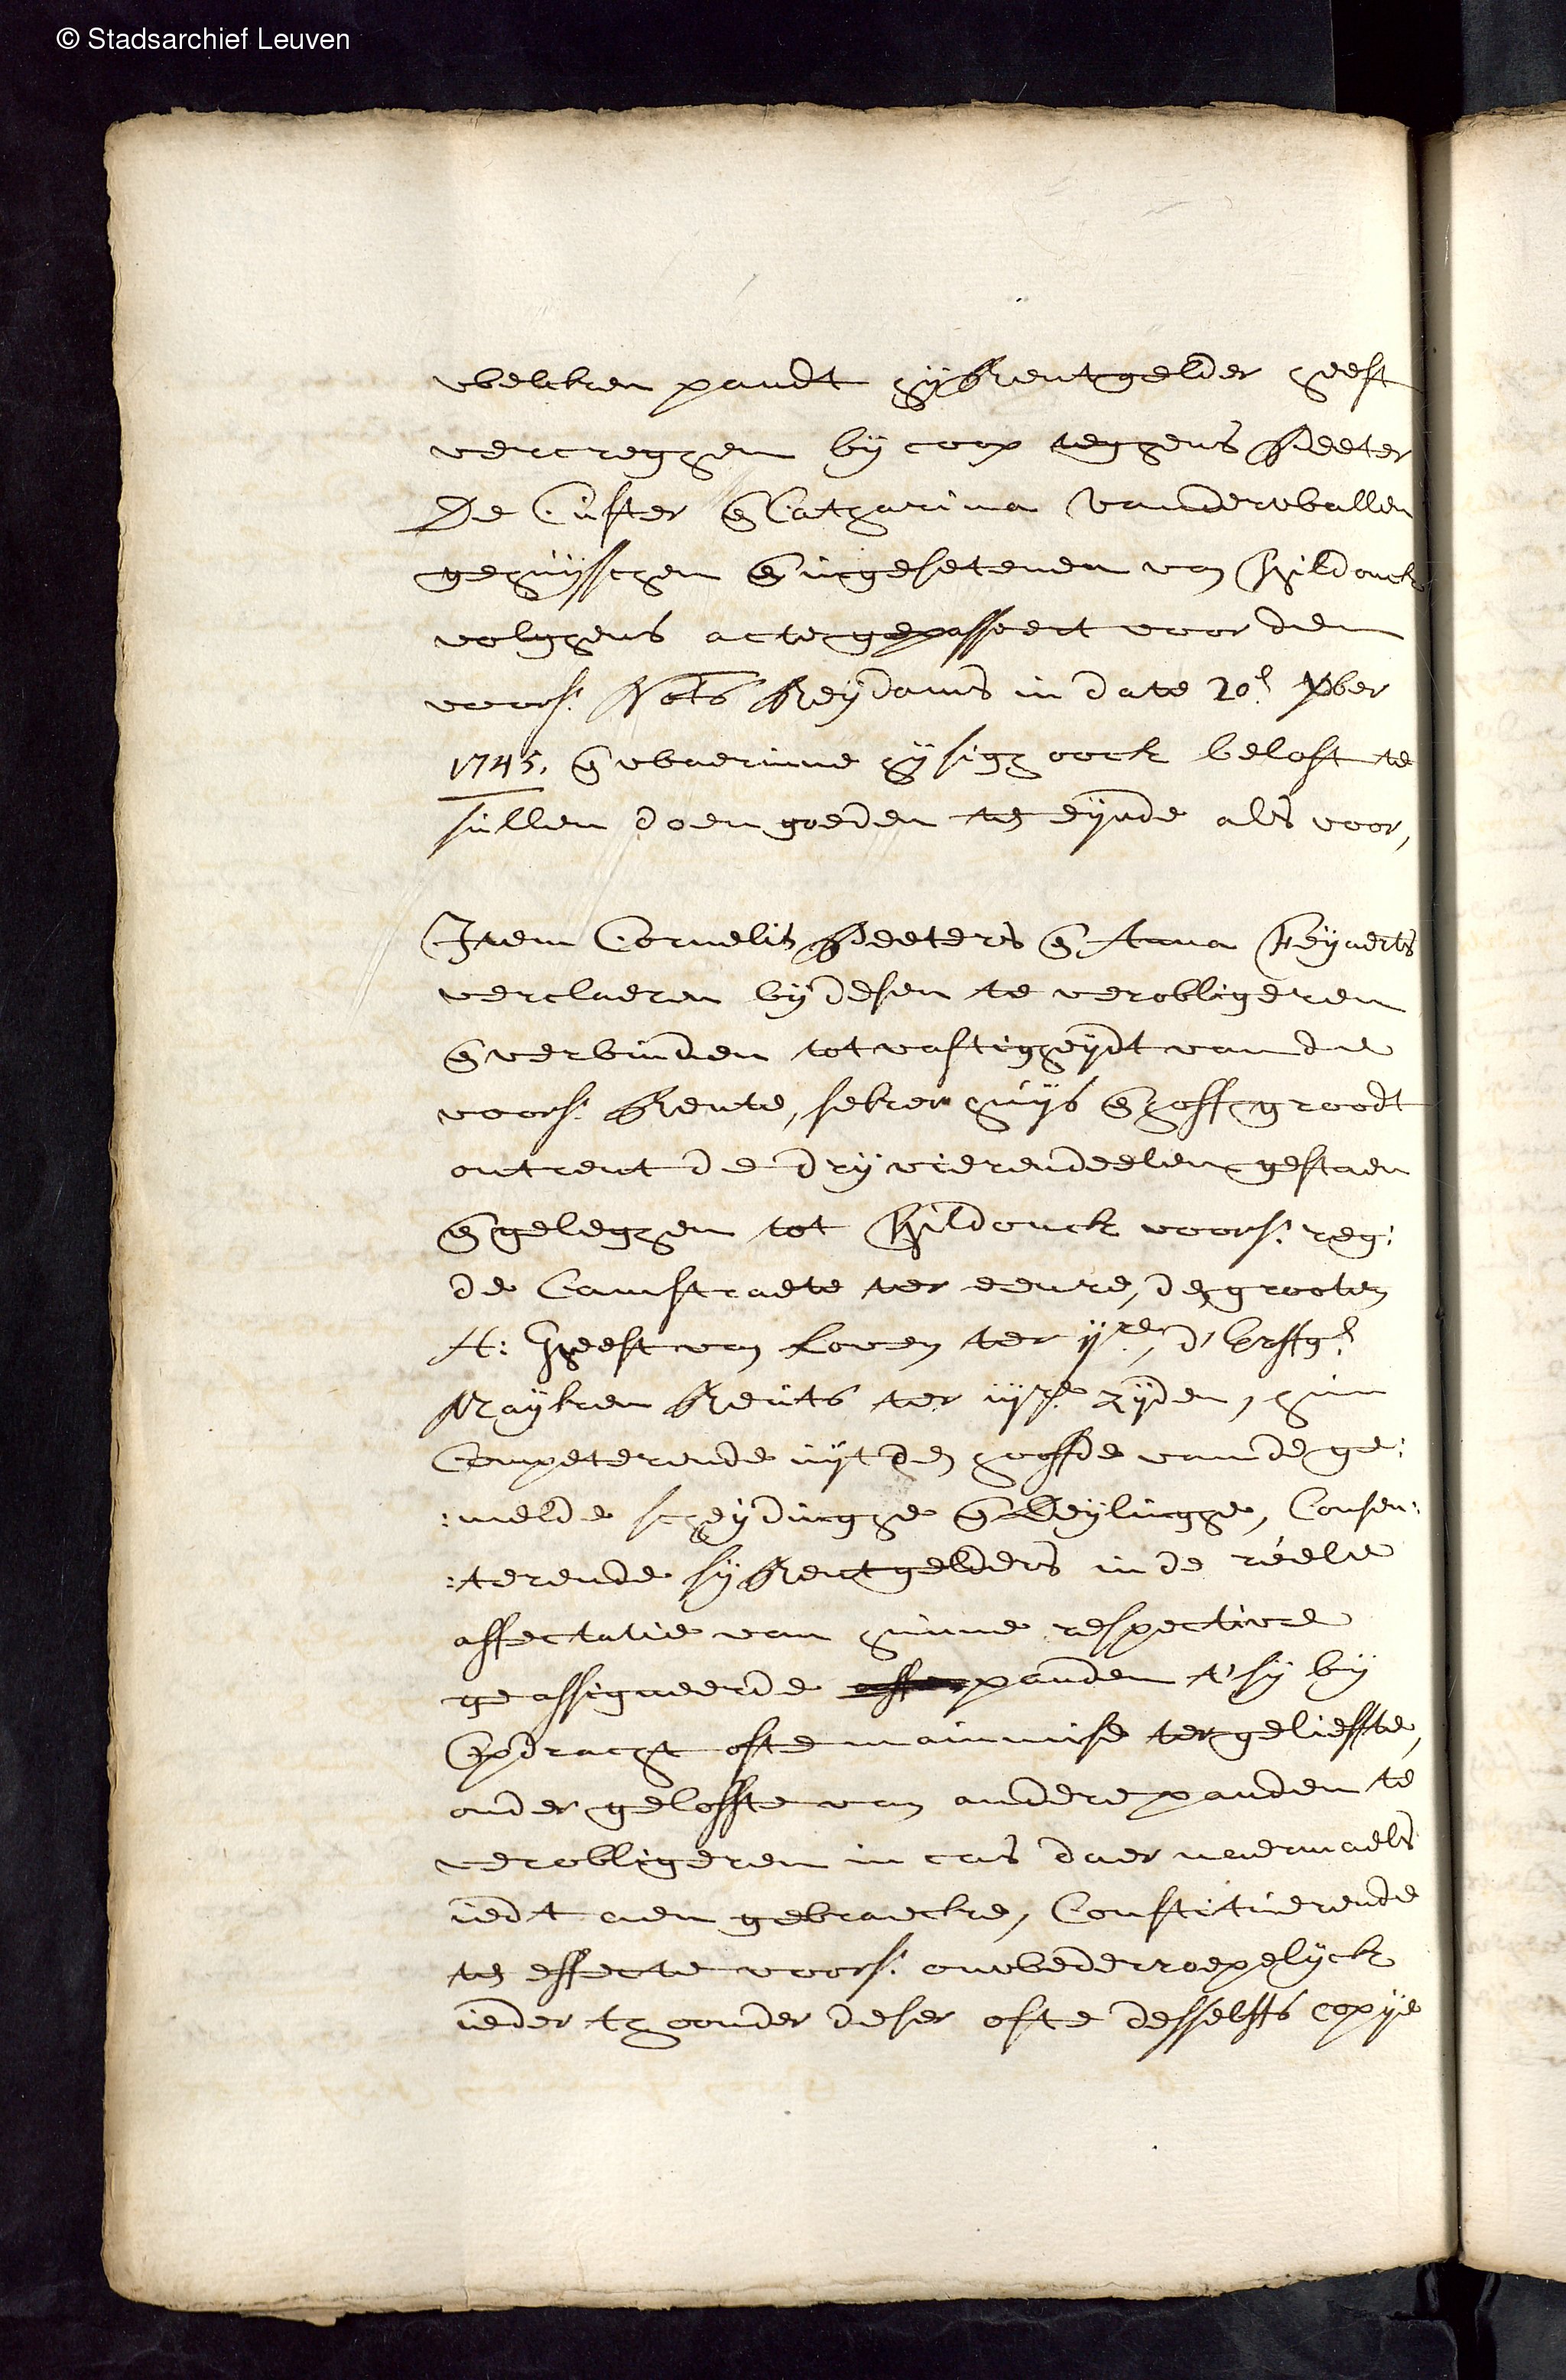 © Stadsarchief Leuven
welcken pandt hij Rentgelder heeft
vercreghen bij coop teghens Peeter
De Cüster en̄ Catharina Vanderwallen
gehüijsschen en̄ ingesetenen van Wildonck
volghens acte gepasseert voor den
voors: Nots Reijdams in date 20e xber
1745, en̄ waerinne hij sigh oock beloft te
süllen doen goeden ten eijnde als voor,
Item Cornelis Peeters en̄ Anna Feijaerts
verclaeren bij desen te verobligeren
en̄ verbinden tot vastigheijdt van de
voors: Rente, seker hüijs en̄ hoff groodt
ontrent de drij vierendeelen gestaen
en̄ geleghen tot Wildonck voors: reg:
de Camstraete ter eenre, den grooten
H: Gheest van Loven ter ijre, d'Erffg:
Maijken Reüts ter iijre zijden, hün
Competerende uijt den hoofde van de ge:
:melde scheijdinghe en̄ Deijlinghe, Consen:
:terende sij Rentgelders in de réele
affectatie van hünne respective
geassigneerde panden t'sij bij
Opdracht ofte mainmise ter gelieffte,
onder geloffte van andere panden te
verobligeren in cas daer naermaels
iedt aen gebraecke, Constitüerende
ten effecte voors: onwederroepelijck
ieder thoonder deser ofte desselffs copije